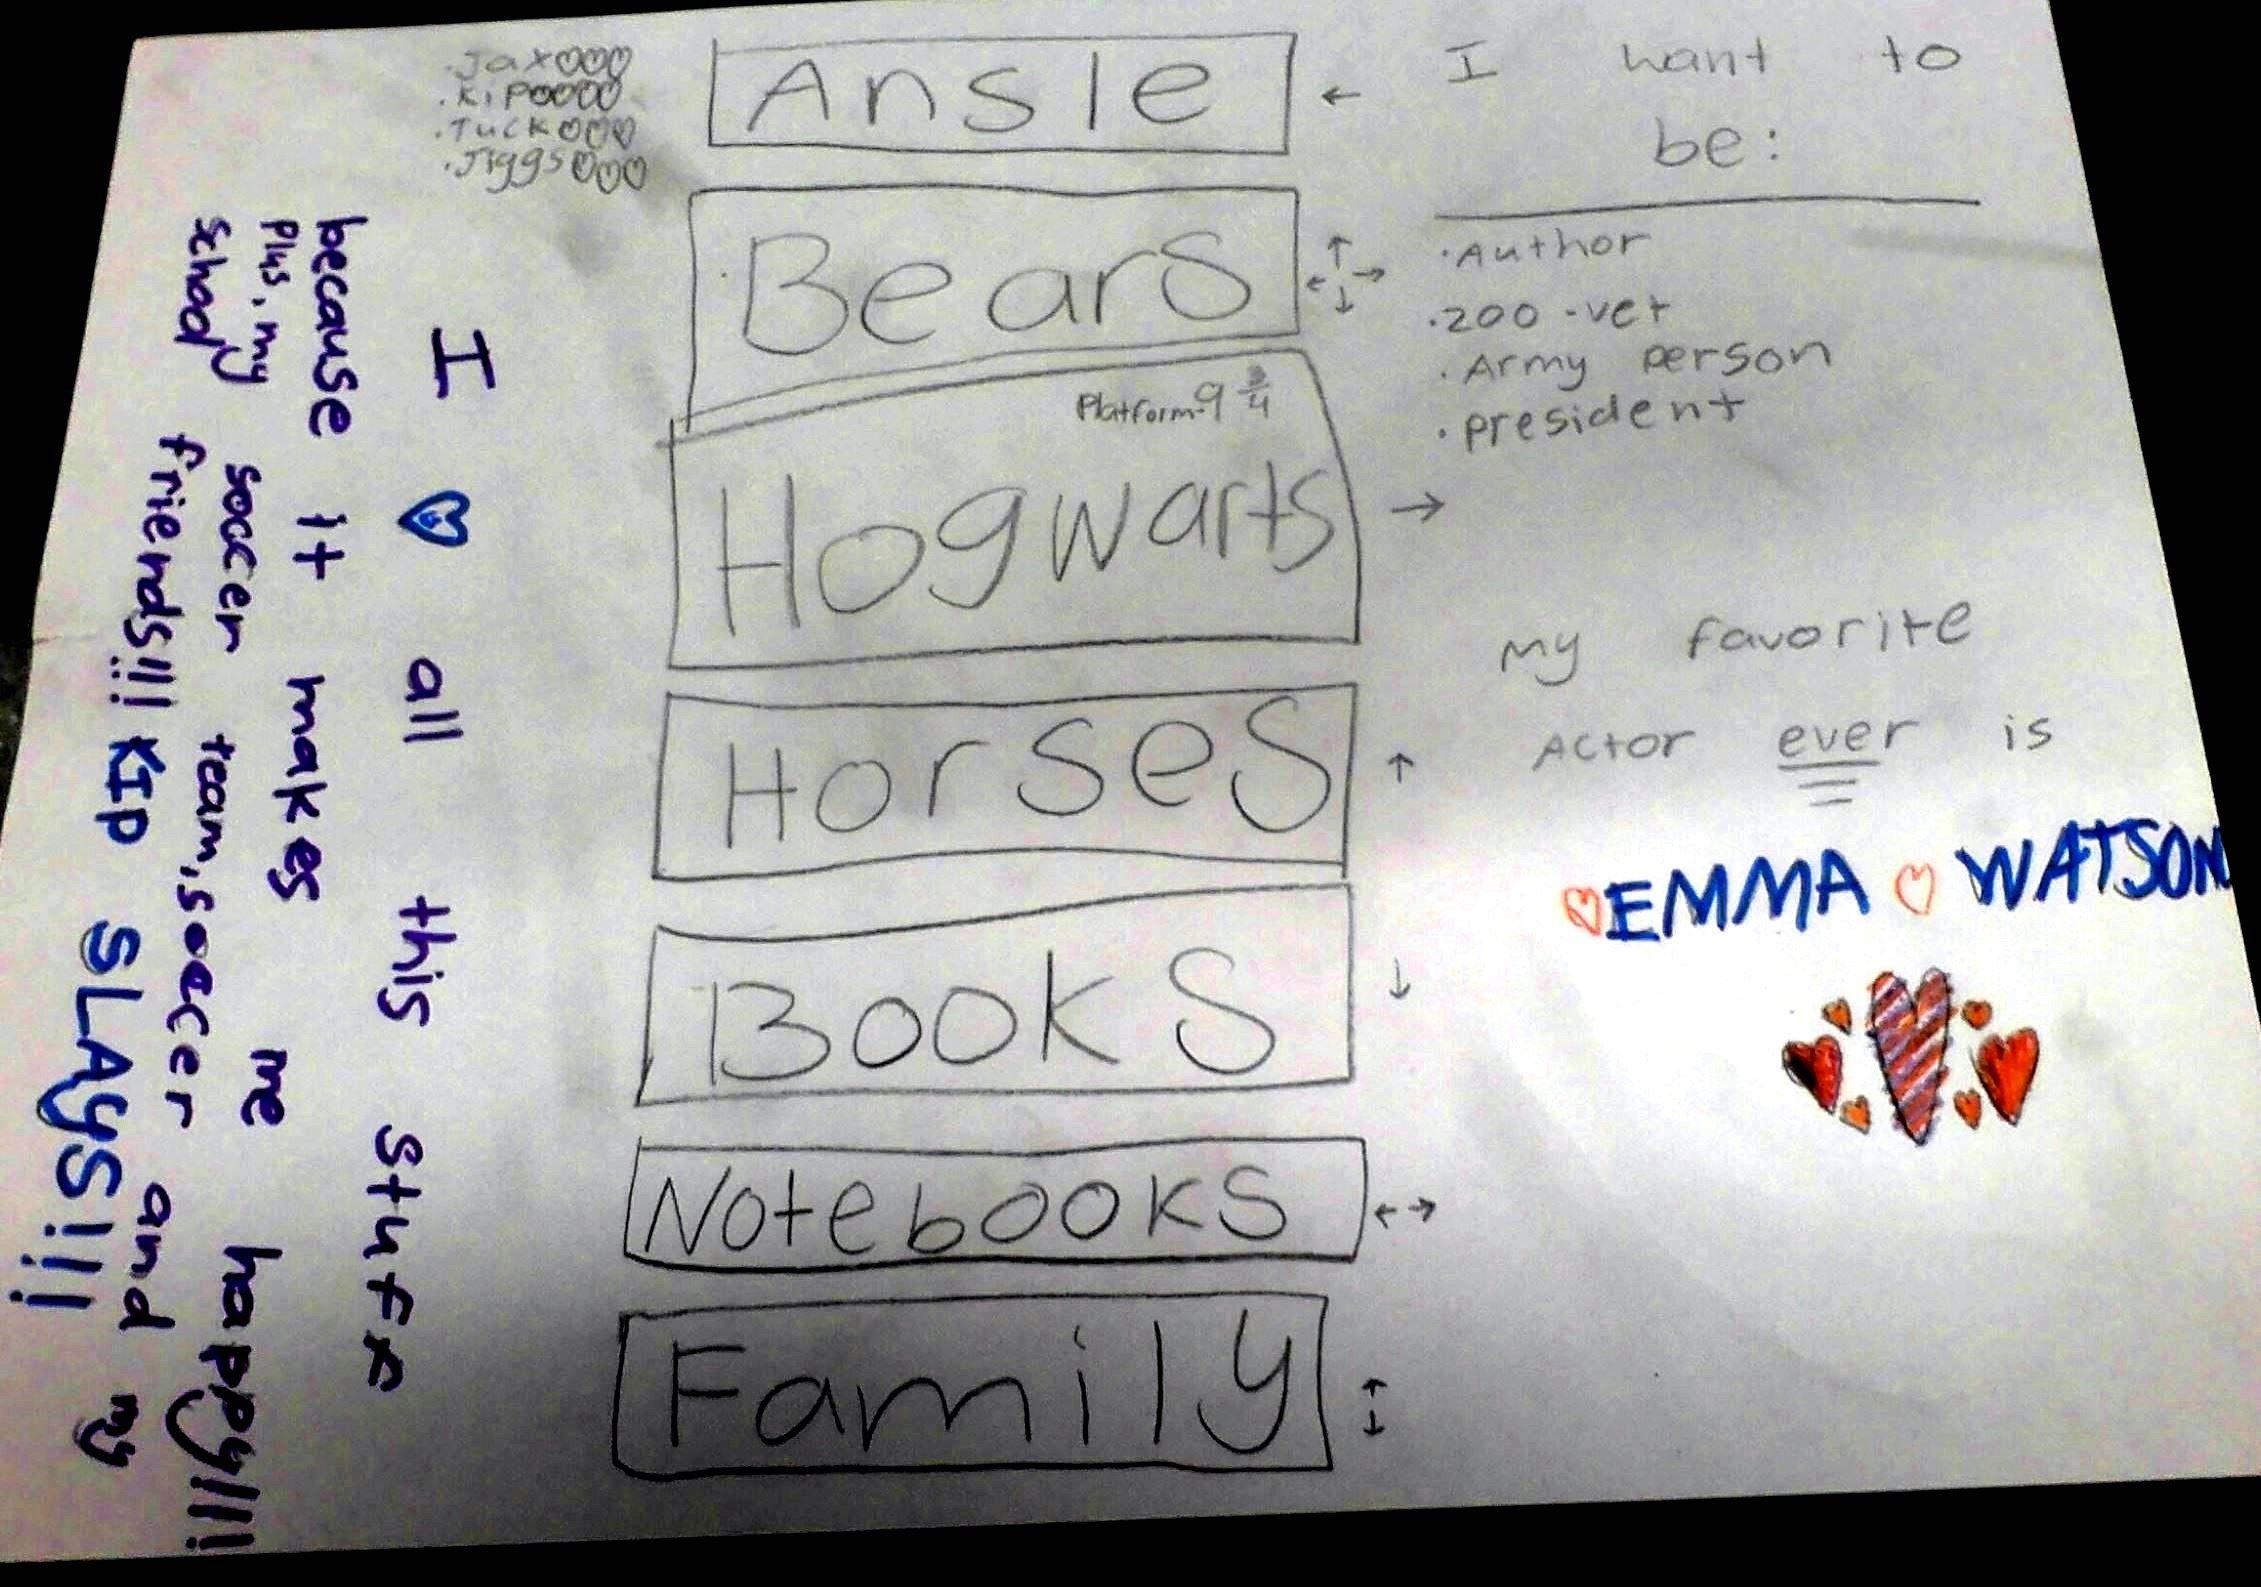 ·Jax♡♡♡
·Kip♡♡♡♡
·Tuck♡♡♡
·Jiggs♡♡♡
Ansle ←
Bears ↑←→↓
Platform-9 3/4
Hogwarts →
Horses ↑
Books ↓
Notebooks ←→
Family ↑↓
I want to
be:
·Author
·zoo -vet
·Army person
·president
my favorite
Actor ever is
♡EMMA♡WATSON
I ♡ all this stuff
because it makes me happy!!!!
Plus, my soccer team, soccer and my
school friends!!!! KIP SLAYS!!!